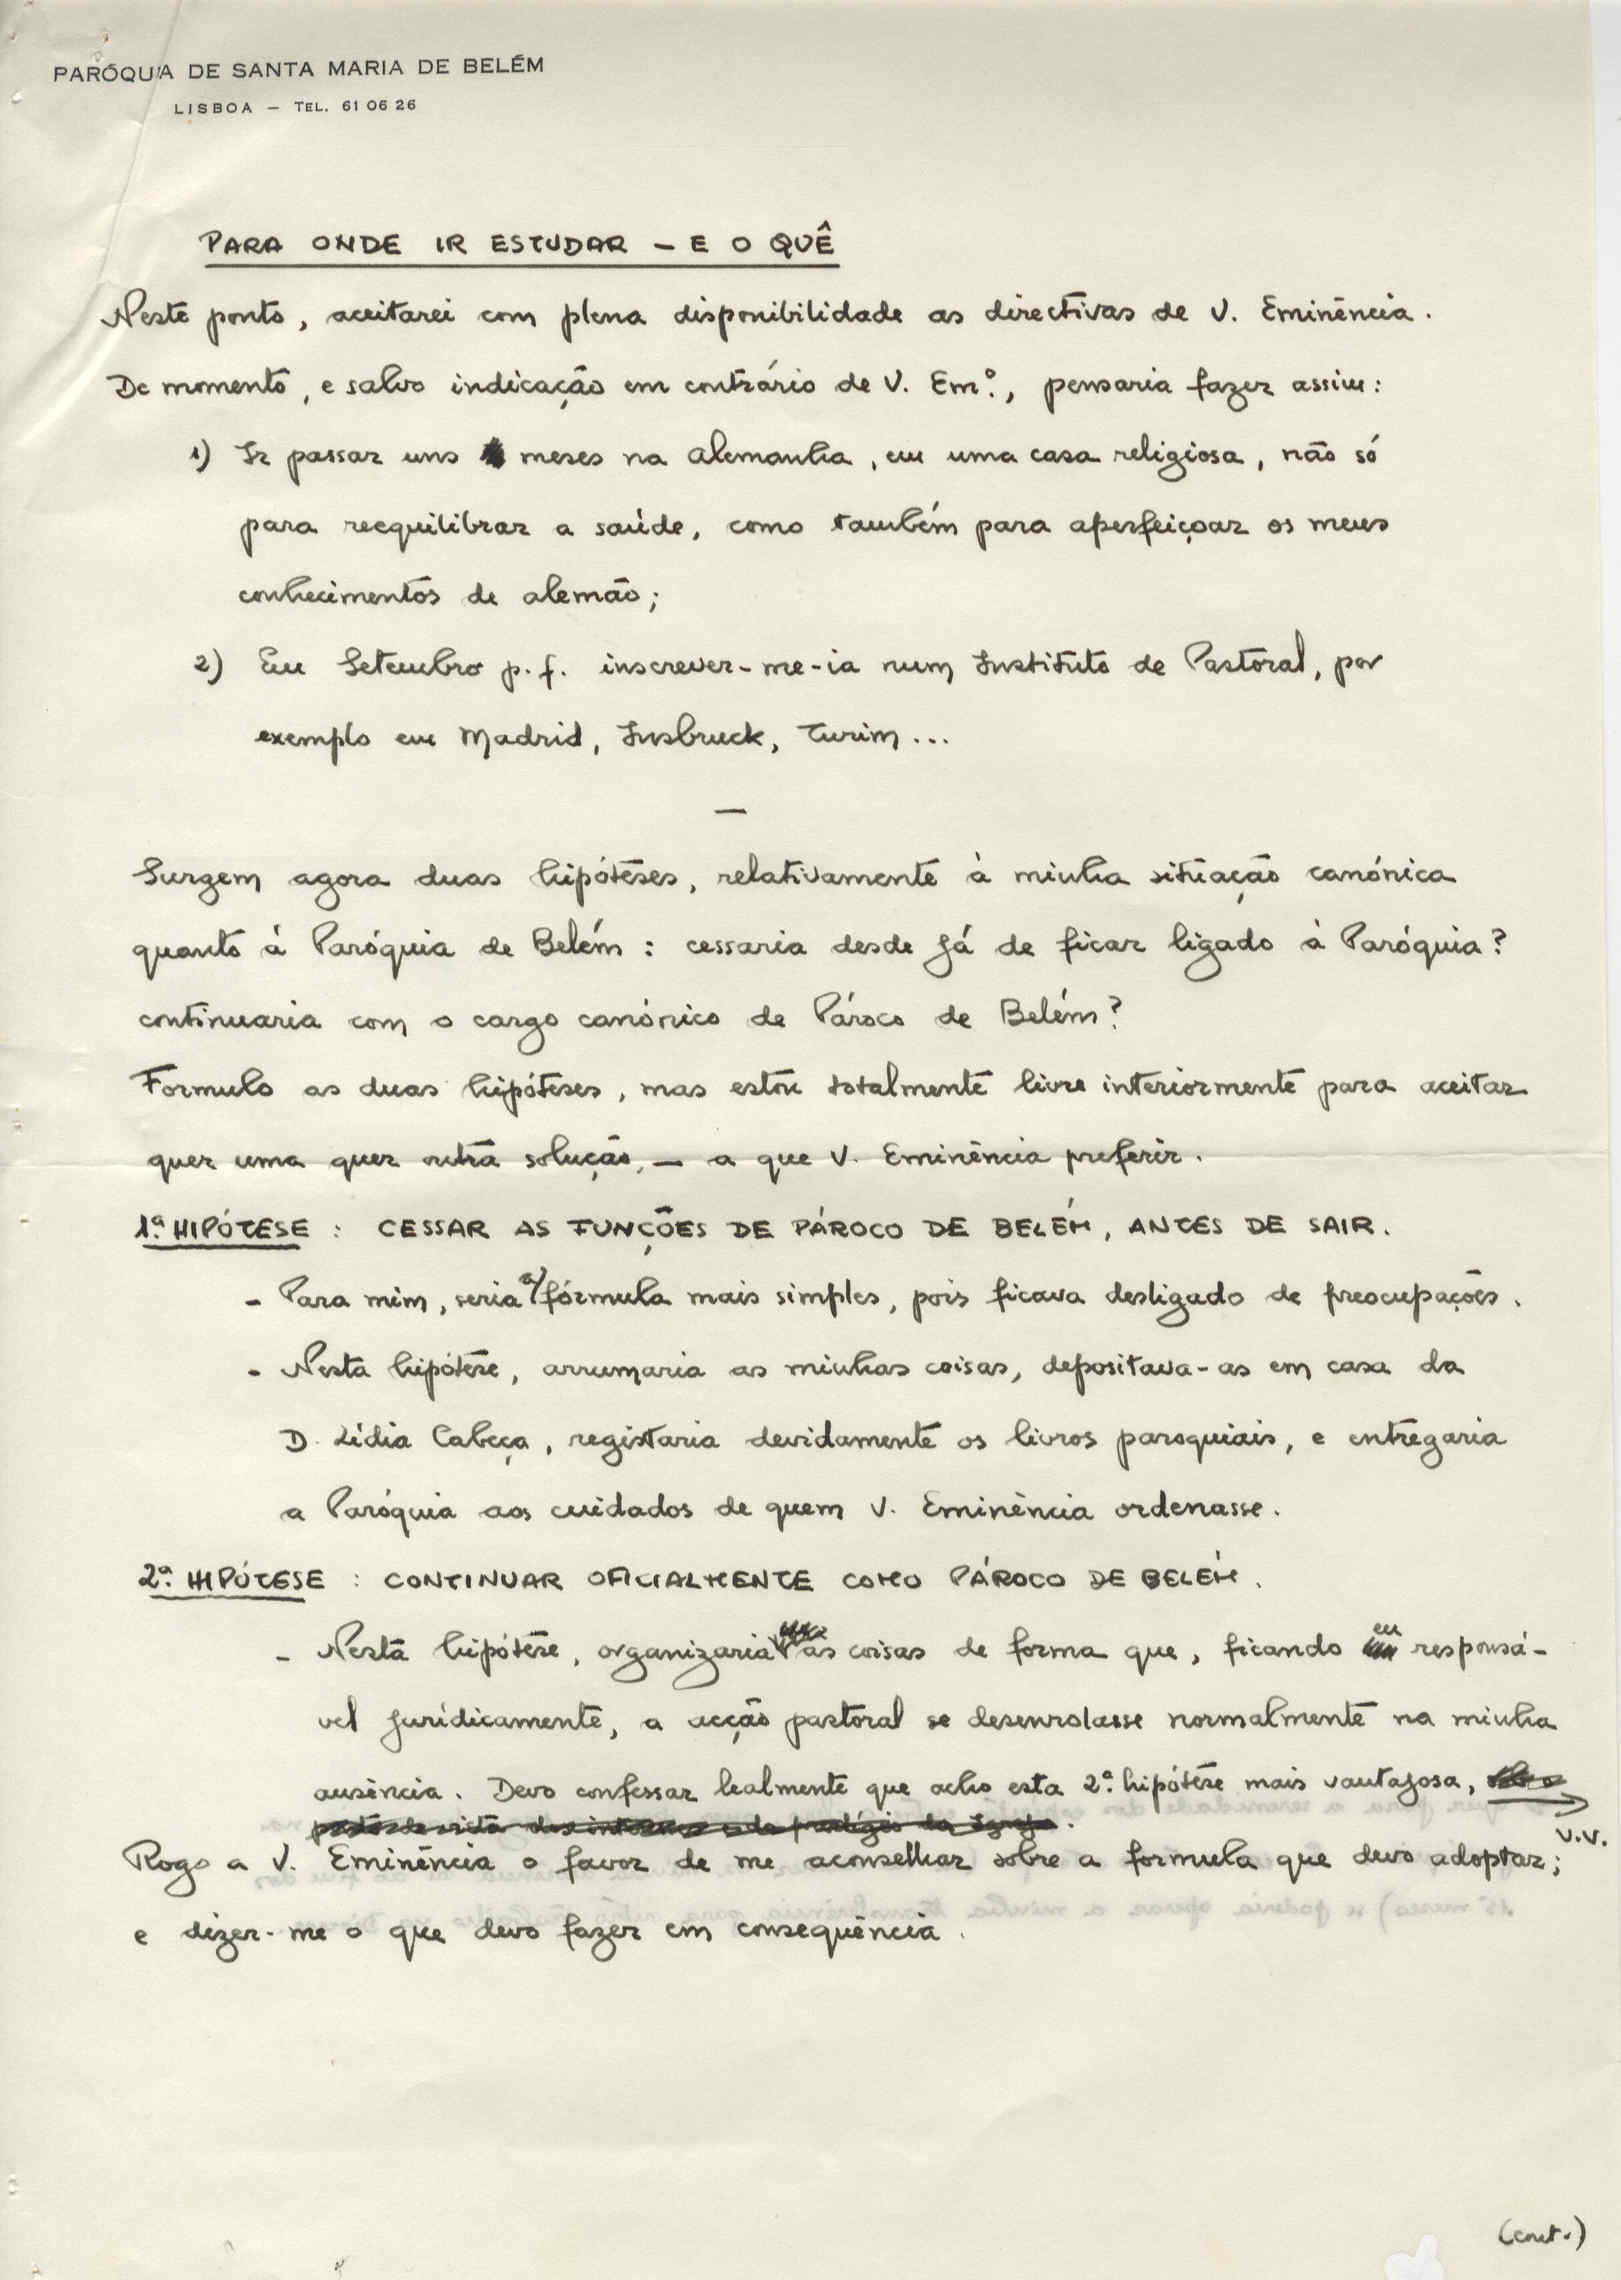 PARÓQUIA DE SANTA MARIA DE BELÉM
LISBOA — TEL. 61 06 26
PARA ONDE IR ESTUDAR — E O QUÊ
Neste ponto, aceitarei com plena disponibilidade as directivas de V. Eminência.
De momento, e salvo indicação em contrário de V. Em.ª, pensaria fazer assim:
1) Ir passar uns meses na Alemanha, em uma casa religiosa, não só
para reequilibrar a saúde, como também para aperfeiçoar os meus
conhecimentos de alemão;
2) Em Setembro p. f. inscrever-me-ia num Instituto de Pastoral, por
exemplo em Madrid, Insbruck, Turim...
—
Surgem agora duas hipóteses, relativamente à minha situação canónica
quanto à Paróquia de Belém: cessaria desde já de ficar ligado à Paróquia?
continuaria com o cargo canónico de Pároco de Belém?
Formulo as duas hipóteses, mas estou totalmente livre interiormente para aceitar
quer uma quer outra solução, — a que V. Eminência preferir.
1ª HIPÓTESE: CESSAR AS FUNÇÕES DE PÁROCO DE BELÉM, ANTES DE SAIR.
- Para mim, seria a fórmula mais simples, pois ficava desligado de preocupações.
- Nesta hipótese, arrumaria as minhas coisas, depositava-as em casa da
D. Lídia Cabeça, registaria devidamente os livros paroquiais, e entregaria
a Paróquia aos cuidados de quem V. Eminência ordenasse.
2ª HIPÓTESE: CONTINUAR OFICIALMENTE COMO PÁROCO DE BELÉM.
- Nesta hipótese, organizaria as coisas de forma que, ficando eu responsá-
vel jurídicamente, a acção pastoral se desenrolasse normalmente na minha
ausência. Devo confessar lealmente que acho esta 2ª hipótese mais vantajosa,
V.V.
Rogo a V. Eminência o favor de me aconselhar sobre a formula que devo adoptar;
e dizer-me o que devo fazer em consequência.
(cont.)